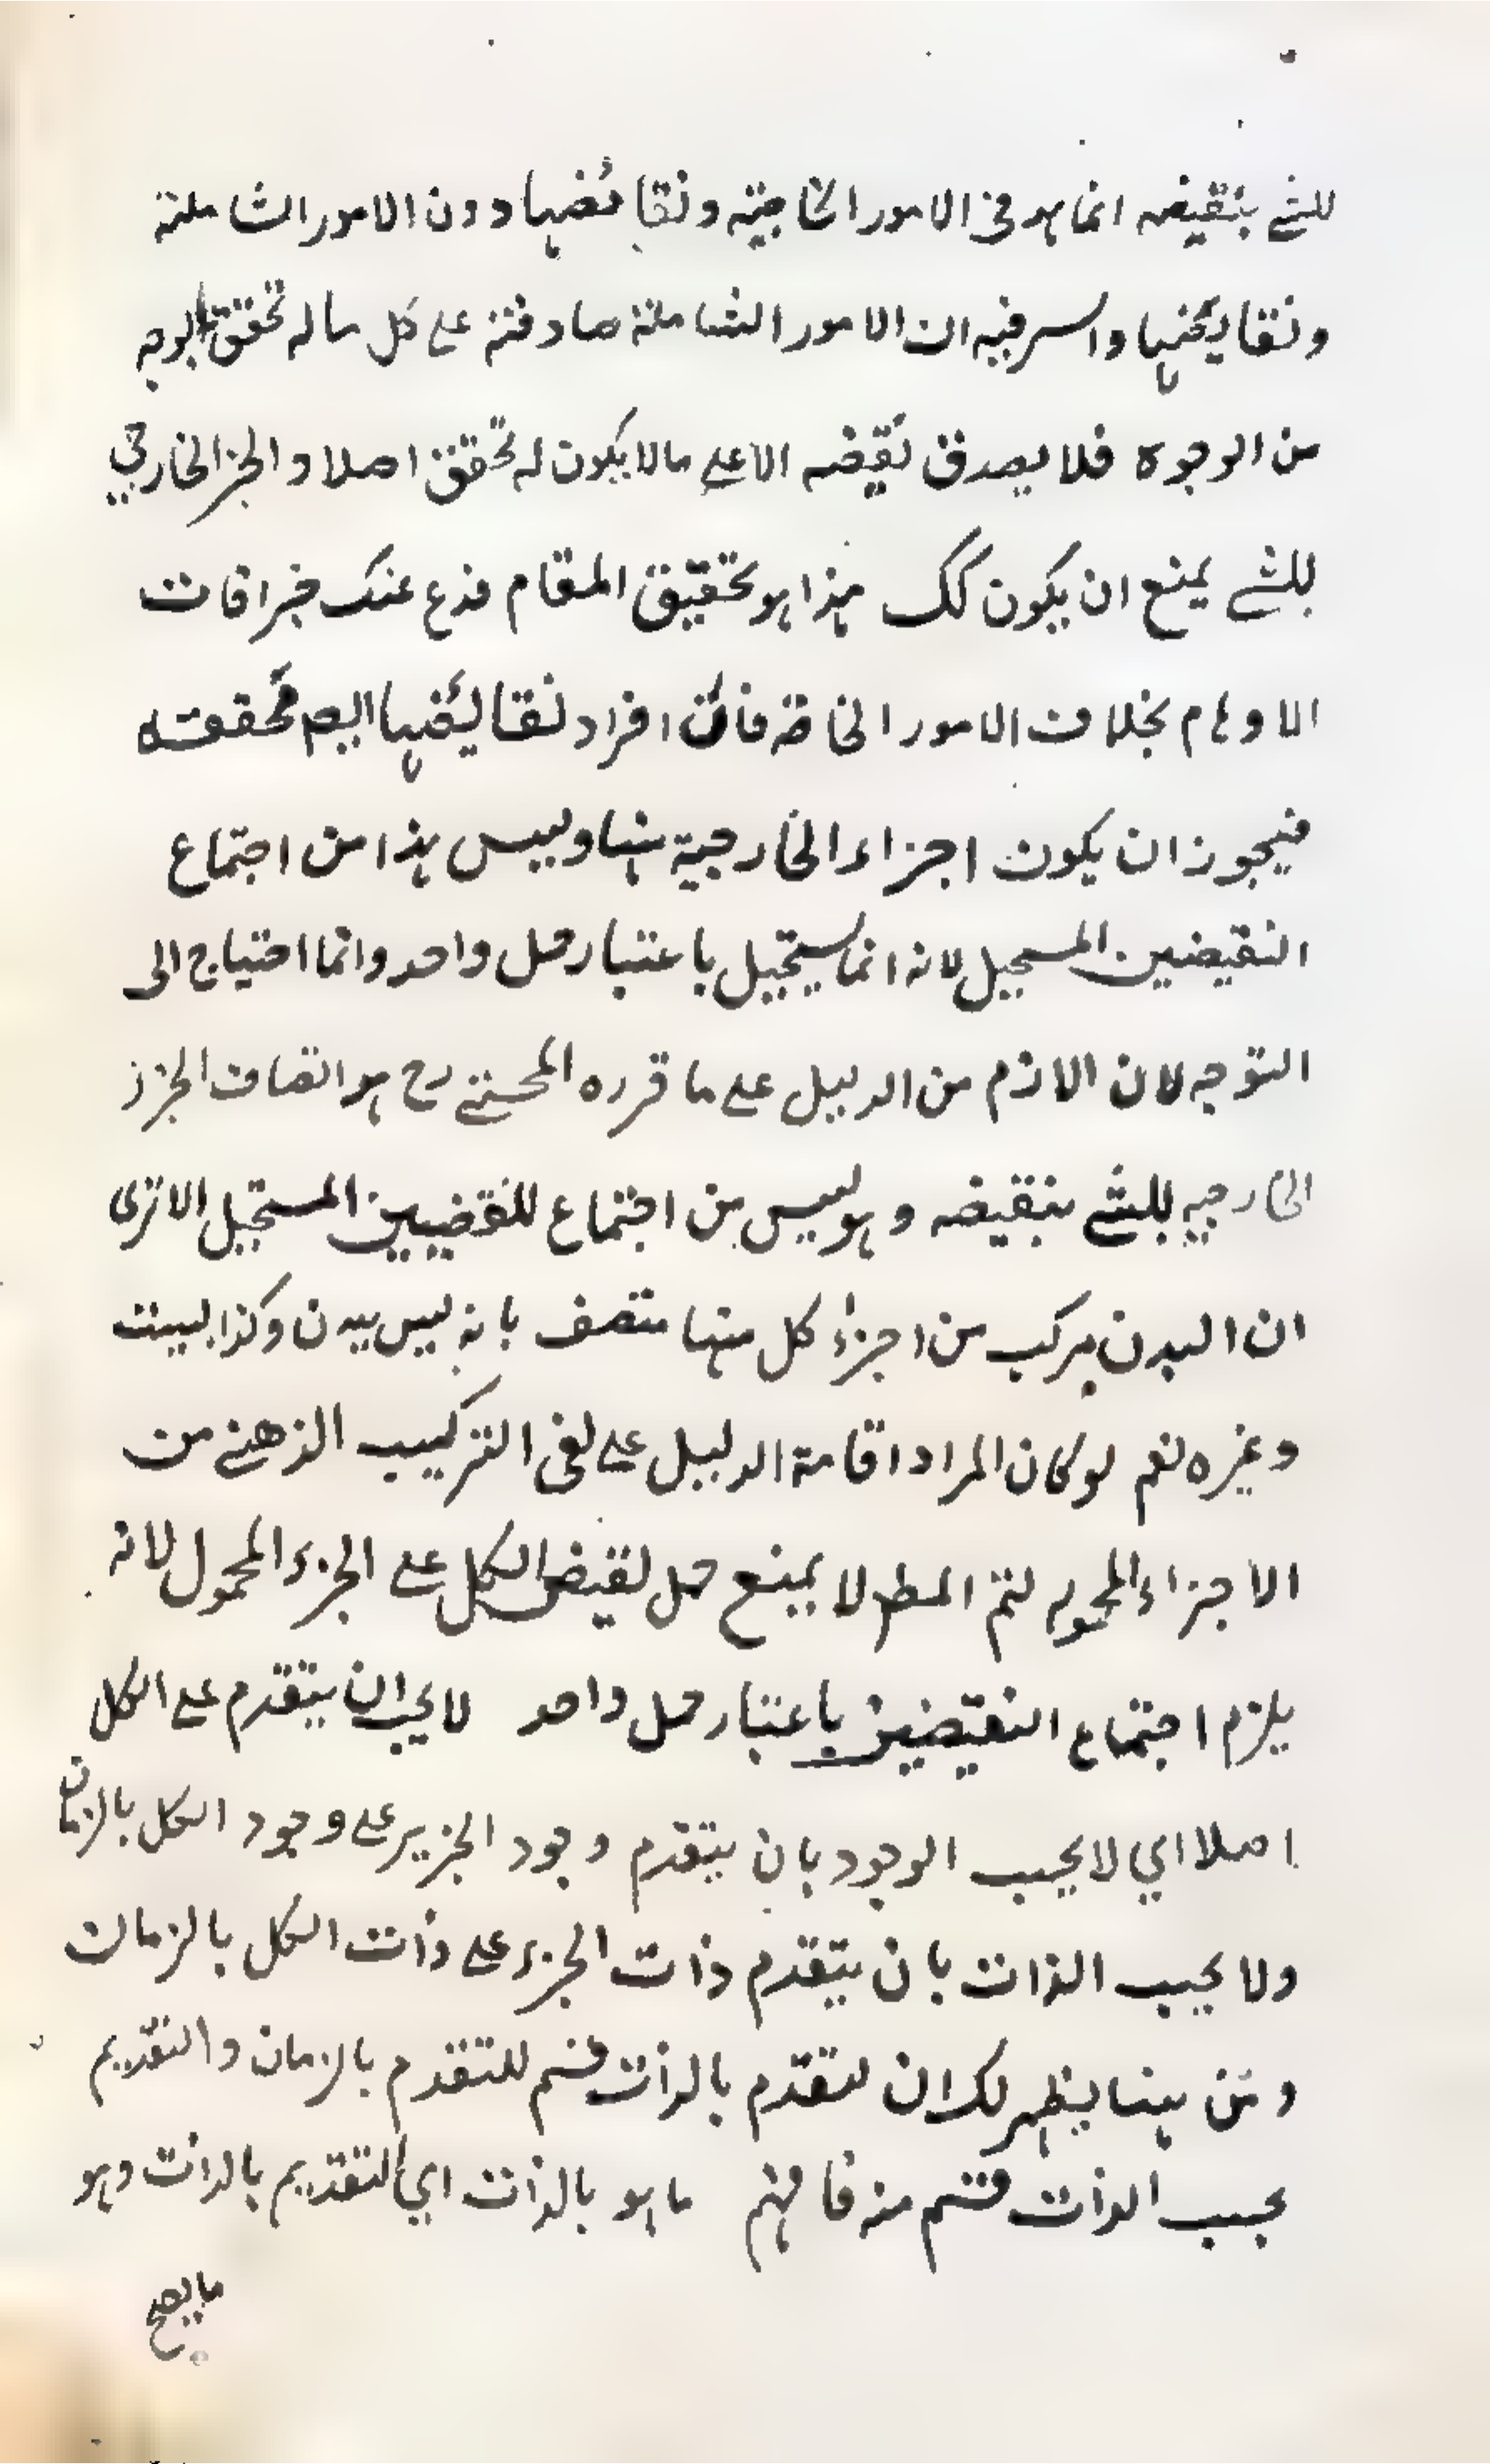 للشئ بنقيضه انما هو في الامور الخاصة ونقائضها دون الامور الشاملة
ونقايضها والسر فيه ان الامور الشاملة صادقة على كل ماله تحقق بوجه
من الوجوه فلا يصدق نقيضه الا على مالا يكون له تحقق اصلا والجز الخارجي
للشئ يمنع ان يكون كك هذا هو تحقيق المقام فدع عنك خرافات
الاوهام بخلاف الامور الخاصة فان افراد نقايضها ايضم محققة
فيجوز ان يكون اجزاء الخارجية منها وليس هذا من اجتماع
النقيضين المستحيل لانه انما يستحيل باعتبار حمل واحد وانما احتياج الى
التوجه لان الازم من الدليل على ما قرره المحشي رح هو اتصاف الجزز
الخارجيه للشئ بنقيضه وهو ليس من اجتماع للنقضيين المستحيل الا ترى
ان البدن مركب من اجزاء كل منها متصف بانه ليس ببدن وكذا لبيت
وغيره نعم لو كان المراد اقامة الدليل على نفى التركيب الذهني من
الاجزاء المحموله لتم المط لا يمنع حمل نقيض الكل على الجزء المحمول لانه
يلزم اجتماع النقيضين باعتبار حمل واحد لا يجب ان يتقدم على الكل
اصلا اي لا بحسب الوجود بان يتقدم وجود الجزير على وجود الكل بالزمان
ولا بحسب الذات بان يتقدم ذات الجزء على ذات الكل بالزمان
ومن ههنا يظهر لك ان لتقدم بالذات قسم للتقدم بالزمان والتقديم
بحسب الذات قسم منه فافهم ما هو بالذات اي التقديم بالذات وهو
ما يصح